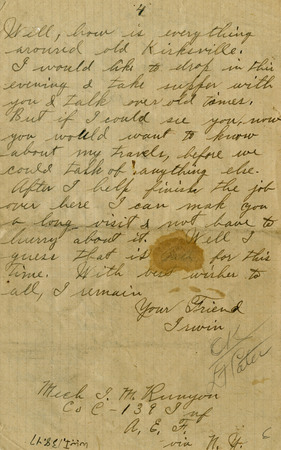 4
Well, how is everything
around old Kirksville.
I would like to drop in this
evening & take supper with
you & talk over old times.
But if I could see you, now
you would want to know
about my travels, before we
could talk of anything else.
After I help finish the job
over here I can make you
a long visit & not have to
hurry about it. Well I
guess that is for this
time. With best wishes to
all, I remain
Your Friend
Irwin
Mech I. M. Runyon
Co C - 139 Inf
A. E. F.
via N. Y.